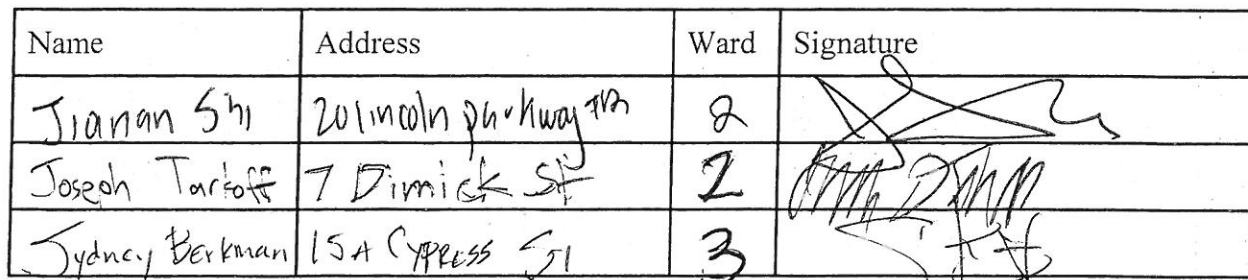 Name Address Ward Signature
Jianan Shi 20 lincoln parkway #2 2
Joseph Tartoff 7 Dimick St 2
Sydney Berkman 15A Cypress St 3